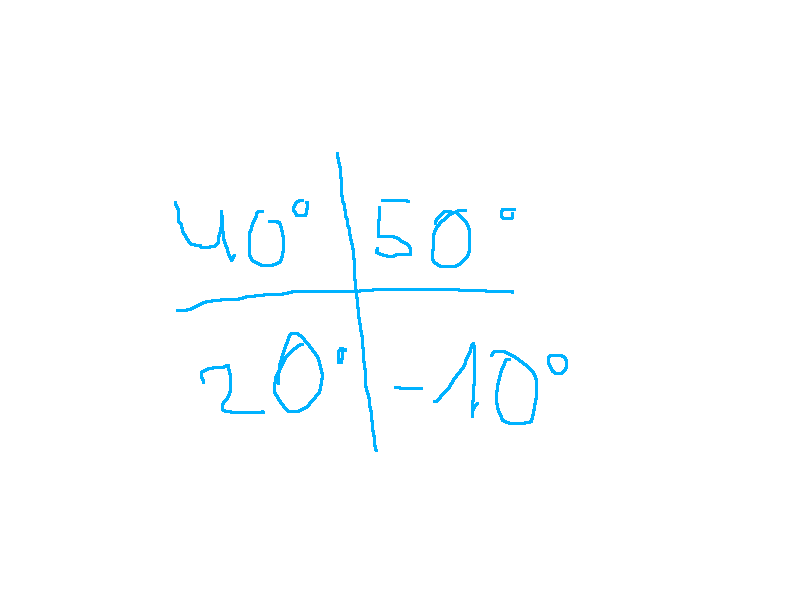 40° 50°
20° -10°